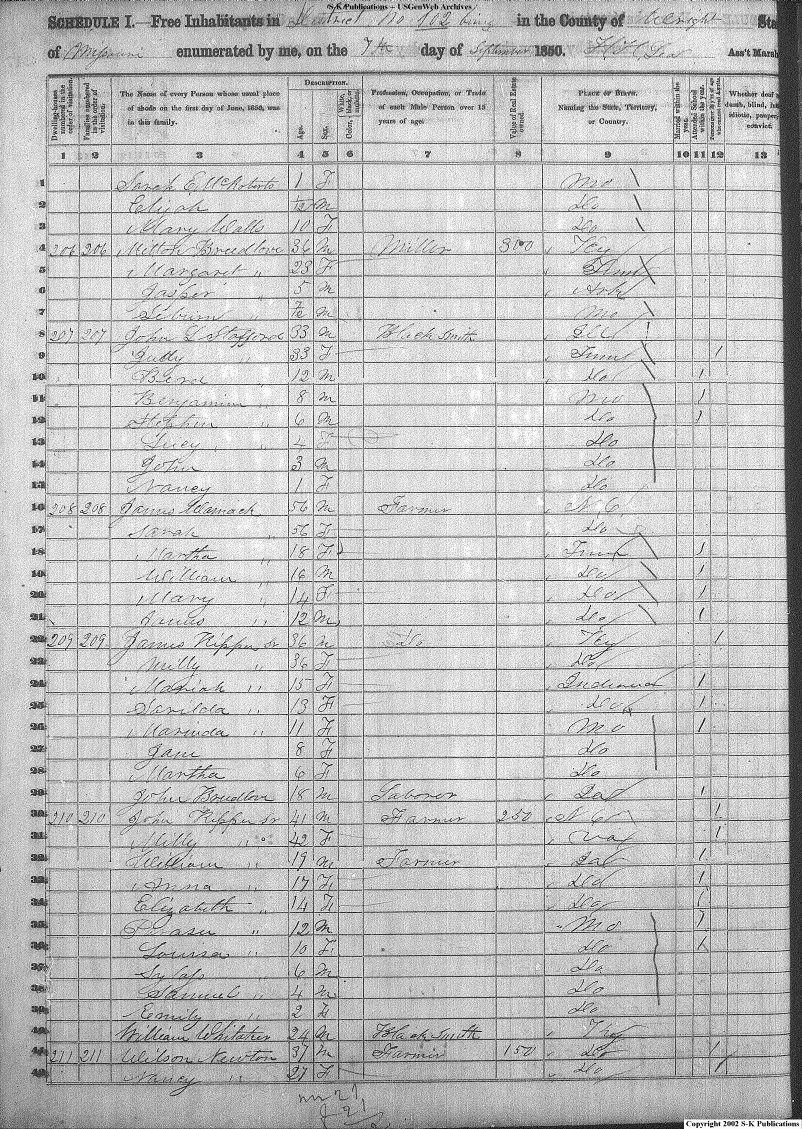 S-K Publications - USGenWeb Archives
SCHEDULE I.—Free Inhabitants in District No 102 being in the County of Wright State
of Missouri enumerated by me, on the 7th day of September 1850. Ass't Marsh
Dwelling-houses numbered in the order of visitation.
Families numbered in the order of visitation.
The Name of every Person whose usual place of abode on the first day of June, 1850, was in this family.
DESCRIPTION.
Age.
Sex.
White, Color, black, or mulatto.
Profession, Occupation, or Trade of each Male Person over 15 years of age.
Value of Real Estate owned.
PLACE OF BIRTH. Naming the State, Territory, or Country.
Married within the year.
Attended School within the year.
Whether deaf and dumb, blind,
idiotic, pauper,
convict.
1 2 3 4 5 6 7 8 9 10 11 12 13
1 Sarah E. McRoberts 1 F Mo
2 Elijah M Do
3 Mary Watts 10 F Do
4 206 206 Milton Breedlove 36 M Miller 300 Key
5 Margaret " 23 F Tenn
6 Jasper 5 M Ark
7 M Mo
8 207 207 John L Stafford 33 M Black Smith Ill
9 33 F Tenn 1
10 12 M Do 1
11 Benjamin " 8 M Mo 1
12 " 6 M Do 1
13 Lucy " 4 F Do
14 John " 3 M Do
15 Nancy 1 F Do
16 208 208 James 56 M Farmer N C
17 Sarah " 56 F Do
18 Martha " 18 F Tenn 1
19 William " 16 M Do 1
20 Mary " 14 F Do 1
21 " 12 M Do 1
22 209 209 James 36 M Do Key 1
23 Milly " 36 F Do
24 Mariah " 15 F Indiana 1
25 Sarilda " 13 F Do 1
26 Marinda " 11 F Mo 1
27 Jane 8 F Do
28 Martha 6 F Do
29 John Breedlove 18 M Laborer 1
30 210 210 John 41 M Farmer 250 N C 1
31 Milly " 42 F Va 1
32 William " 19 M Farmer 1
33 Anna " 17 F Do 1
34 Elizabeth " 14 F Do 1
35 " 12 M Mo 1
36 Louisa " 10 F Do 1
37 " 6 M Do
38 Samuel " 4 M Do
39 Emily " 2 F Do
40 William Whitaker 24 M Black Smith Key
41 211 211 Wilson Newton 37 M Farmer 150 Do 1
42 Nancy " 27 F Do 1
Copyright 2002 S-K Publications